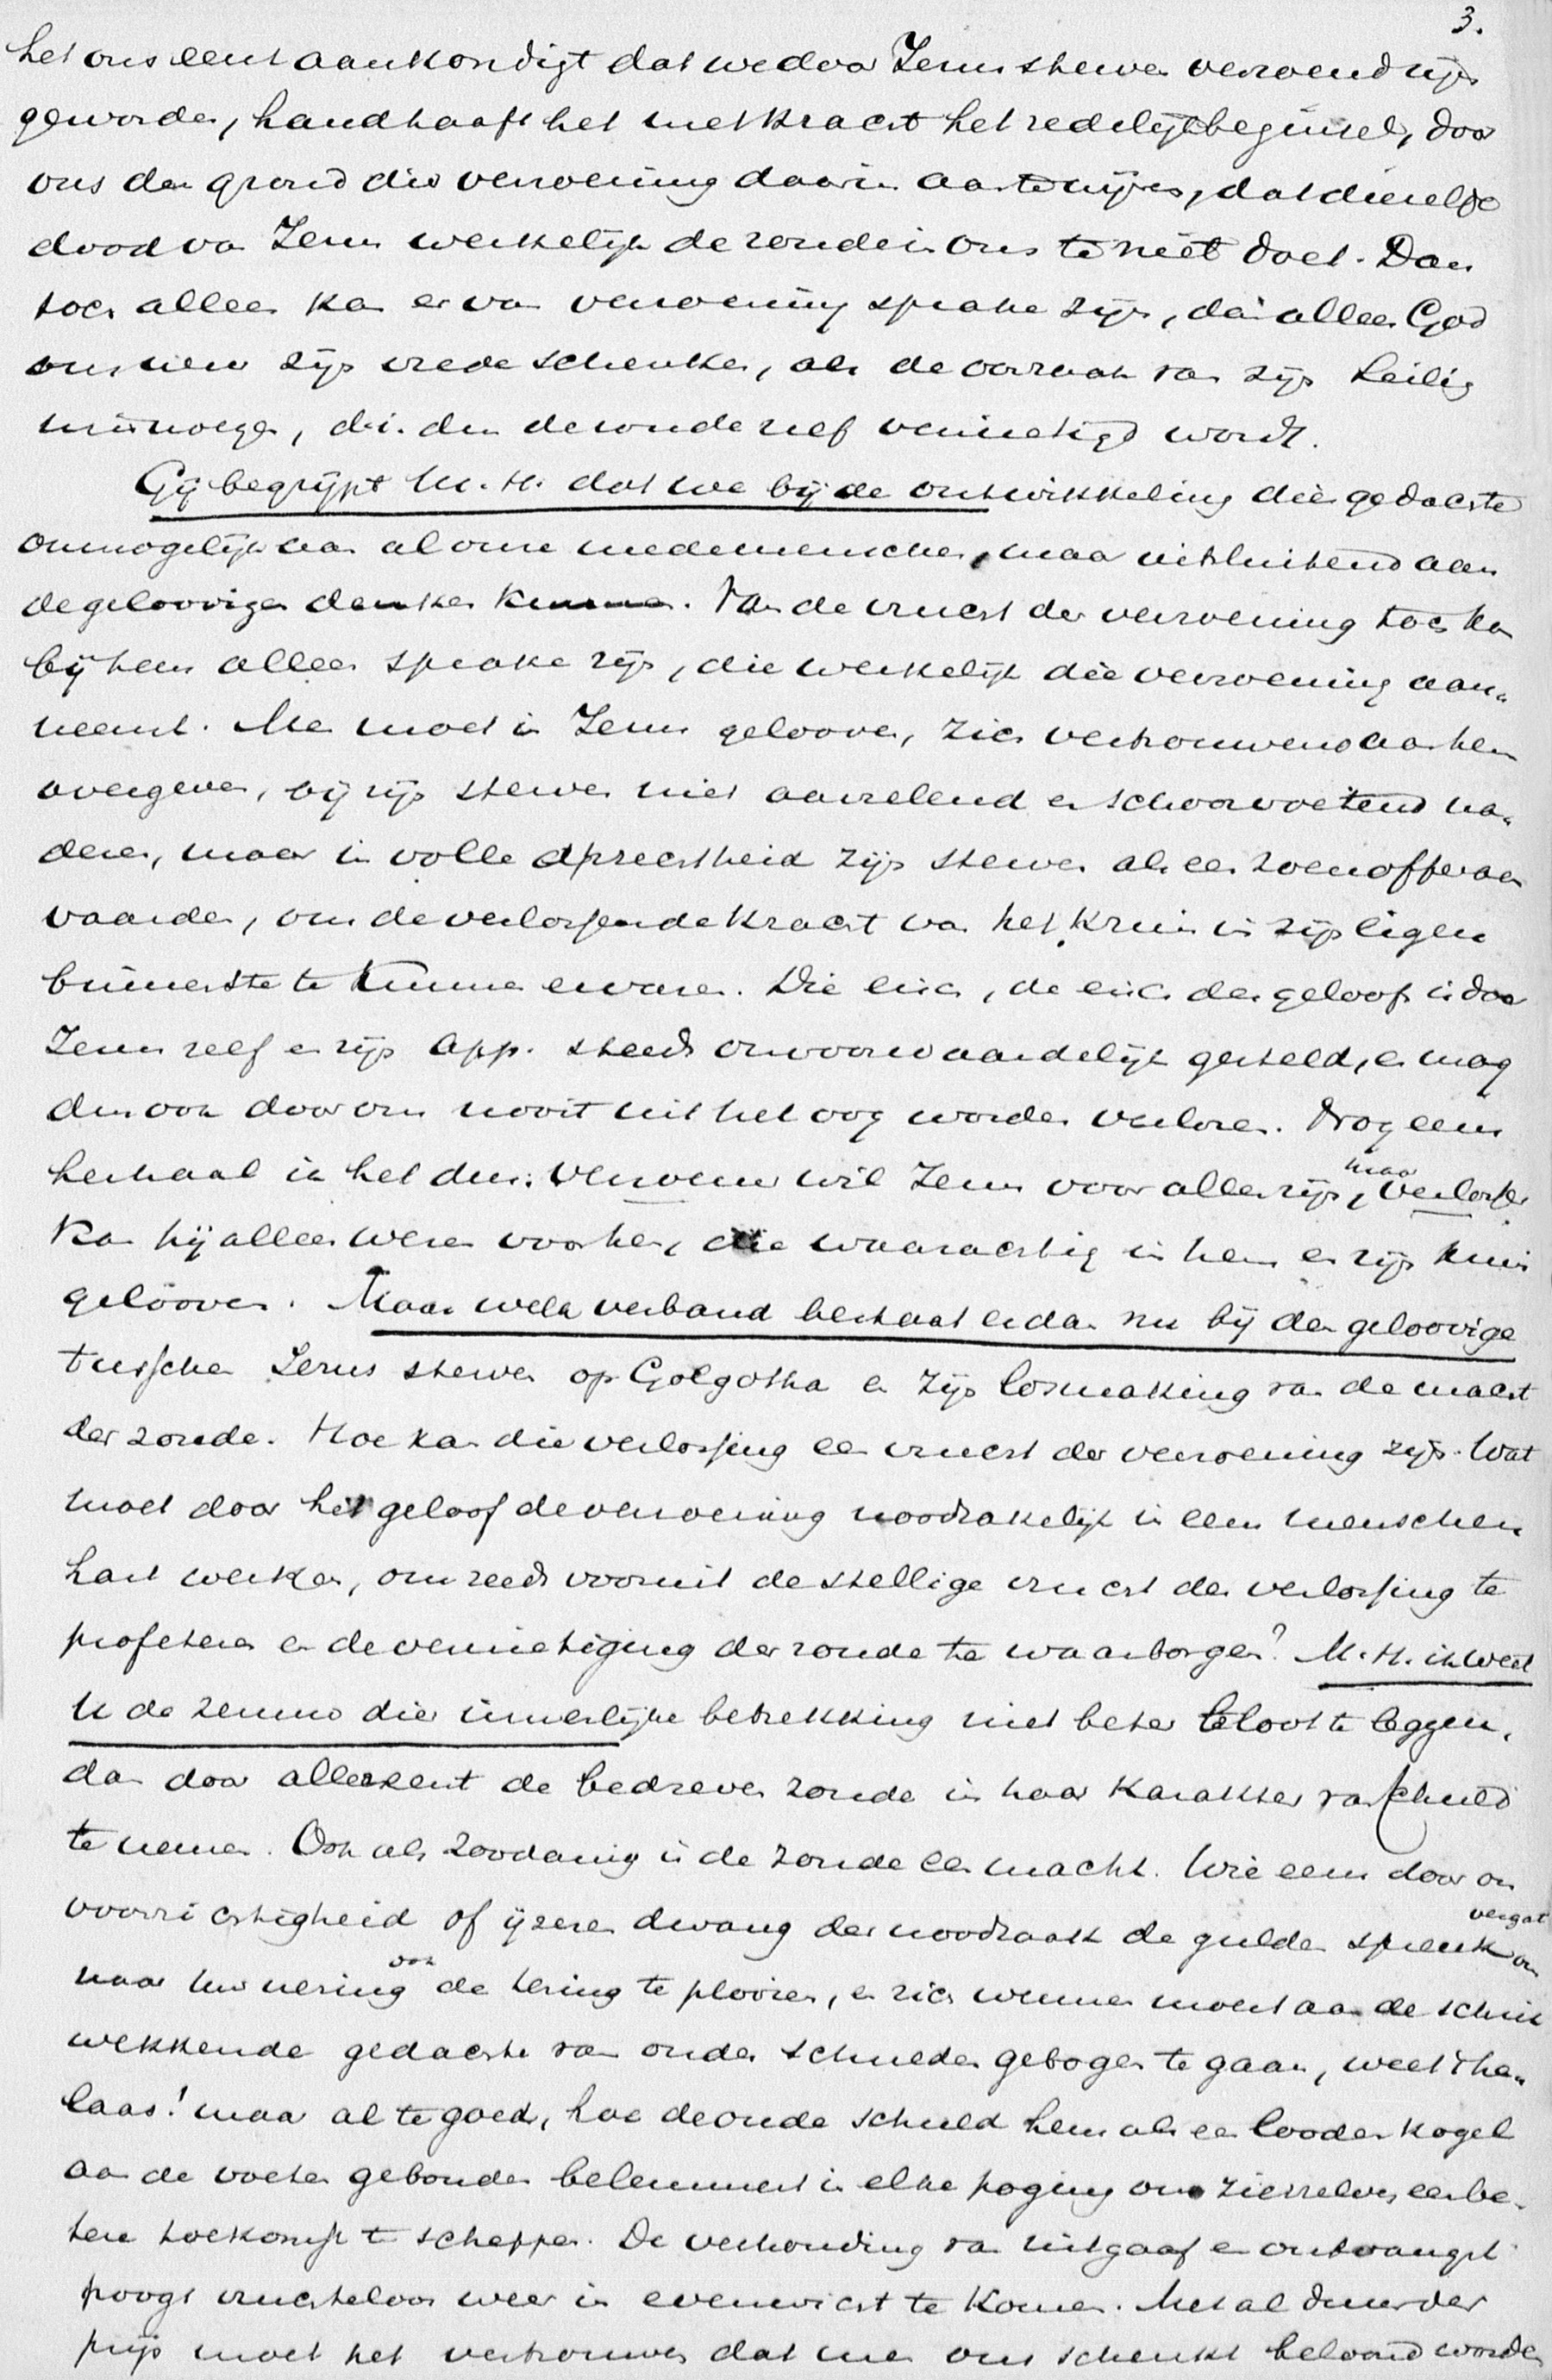 3.
het ons eerst aankondigt dat we door Jezus sterven verzoend zijn
geworden, handhaaft het met kracht het zedelijk beginsel, door
ons den grond dier verzoening daarin aan te wijzen, dat diezelfde
dood van Jezus werkelijk de zonde in ons te niet doet. Dan
toch alleen kan er van verzoening sprake zijn, dán alleen God
ons weer zijn vrede schenken, als de oorzaak van zijn heilig
misnoegen, d.i. dus de zonde zelf vernietigd wordt.
Gij begrijpt M.H. dat we bij de ontwikkeling dier gedachte
onmogelijk aan al onze medemenschen, maar uitsluitend aan
de geloovigen denken kunnen. Van de vrucht der verzoening toch kan
bij hem alleen sprake zijn, die werkelijk die verzoening aan-
neemt. Men moet in Jezus gelooven, zich vertrouwend aan hem
overgeven, bij zijn sterven niet aarzelend en schoorvoetend na-
deren, maar in volle oprechtheid zijn sterven als een zoenoffer aan
vaarden, om de verlossende kracht van het kruis in zijn eigen
binnenste te kunnen ervaren. Die eisch, de eisch des geloofs is door
Jezus zelf en zijn app. steeds onvoorwaardelijk gesteld, en mag
dus ook door ons nooit uit het oog worden verloren. Nog eens
herhaal ik het dus: verzoener wil Jezus voor allen zijn, maar verlosser
kan hij alleen wezen voor hen, die waarachtig in hem en zijn kruis
gelooven. Maar welk verband bestaat er dan nu bij den geloovige
tusschen Jezus sterven op Golgotha en zijn losmaking van de macht
der zonde. Hoe kan die verlossing een vrucht der verzoening zijn. Wat
moet door het geloof de verzoening noodzakelijk in een menschen
hart werken, om reeds vooruit de stellige vrucht der verlossing te
profeteren en de vernietiging der zonde te waarborgen? M.H. ik weet
U de zenuw dier innerlijke betrekking niet beter bloot te leggen,
dan door allereerst de bedreven zonde in haar karakter van schuld
te nemen. Ook als zoodanig is de zonde een macht. Wie eens door on
voorzichtigheid of ijzeren dwang der noodzaak de gulden spreuk vergat om
naar uw nering ook de tering te plooien, en zich wennen moest aan de schrik
wekkende gedachte van onder schulden gebogen te gaan, weet 't he-
laas! maar al te goed, hoe de oude schuld hem als een looden kogel
aan de voeten gebonden belemmert in elke poging om zichzelven een be-
tere toekomst te scheppen. De verhouding van uitgaaf en ontvangst
poogt vruchteloos weer in evenwicht te komen. Met al duurder
prijs moet het vertrouwen dat men ons schenkt beloond worden